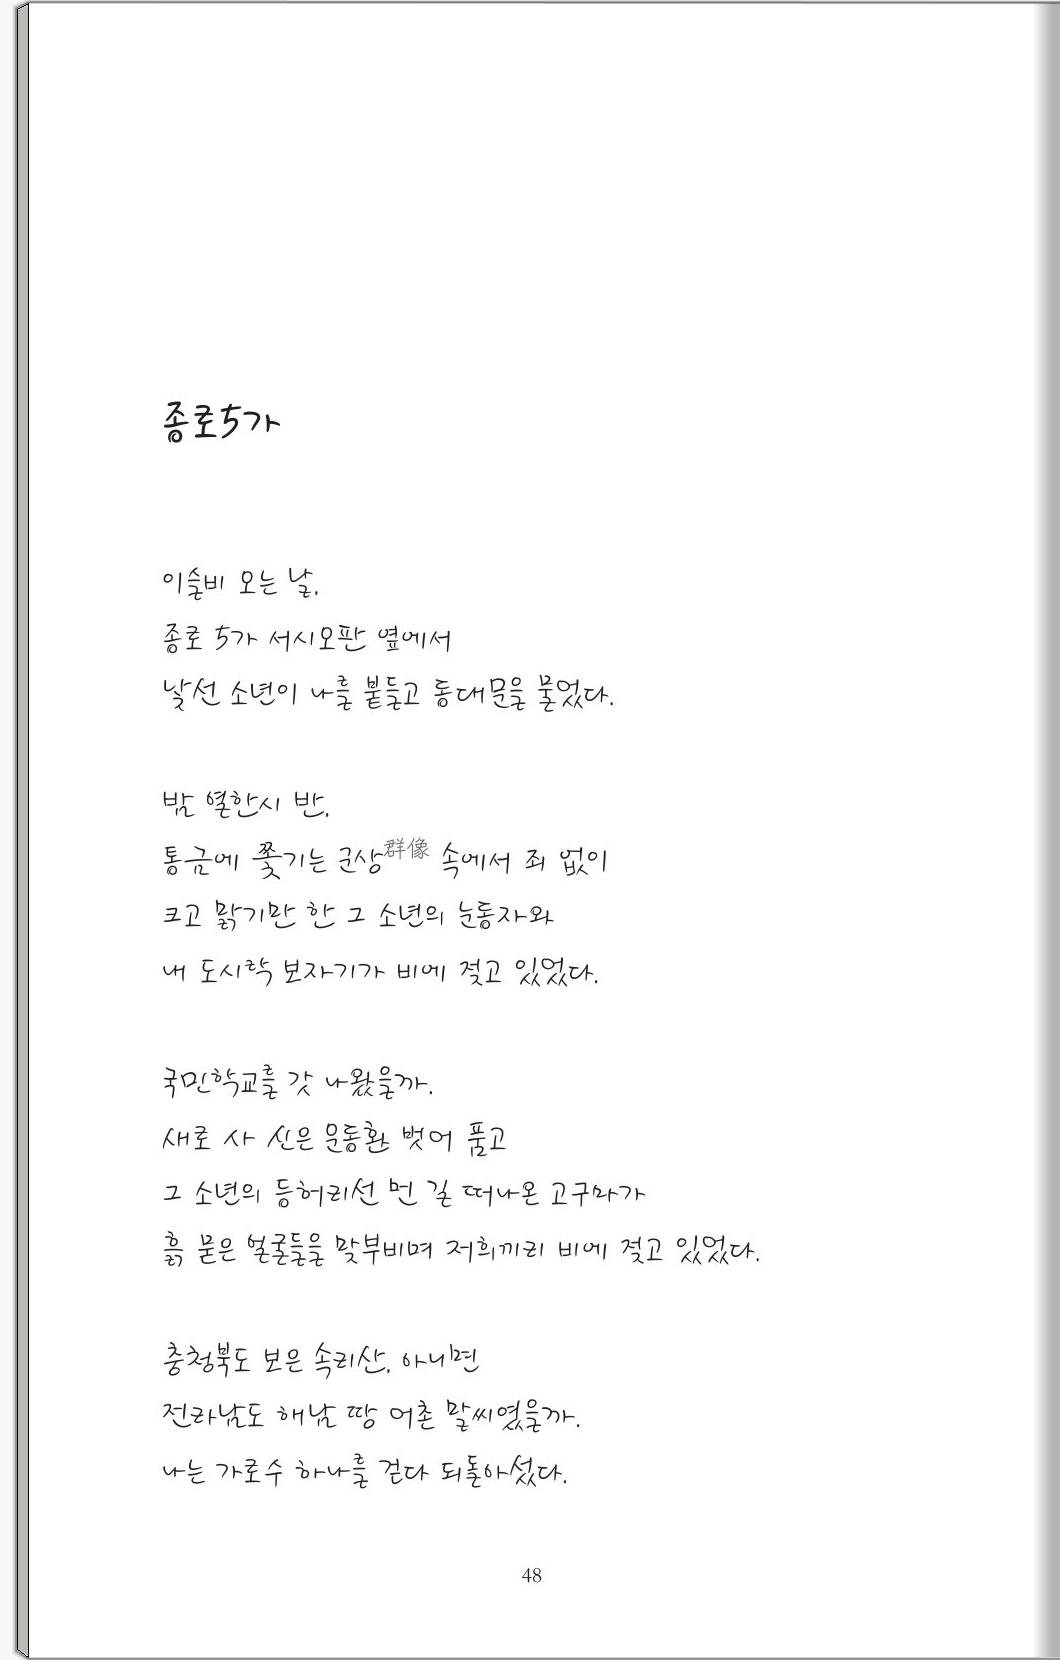 종로5가
이슬비 오는 날,
종로 5가 서시오판 옆에서
낯선 소년이 나를 붙들고 동대문을 물었다.
밤 열한시 반,
통금에 쫓기는 군상群像 속에서 죄 없이
크고 맑기만 한 그 소년의 눈동자와
내 도시락 보자기가 비에 젖고 있었다.
국민학교를 갓 나왔을까.
새로 사 신은 운동환 벗어 품고
그 소년의 등허리선 먼 길 떠나온 고구마가
흙 묻은 얼굴들을 맞부비며 저희끼리 비에 젖고 있었다.
충청북도 보은 속리산, 아니면
전라남도 해남 땅 어촌 말씨였을까.
나는 가로수 하나를 걷다 되돌아섰다.
48